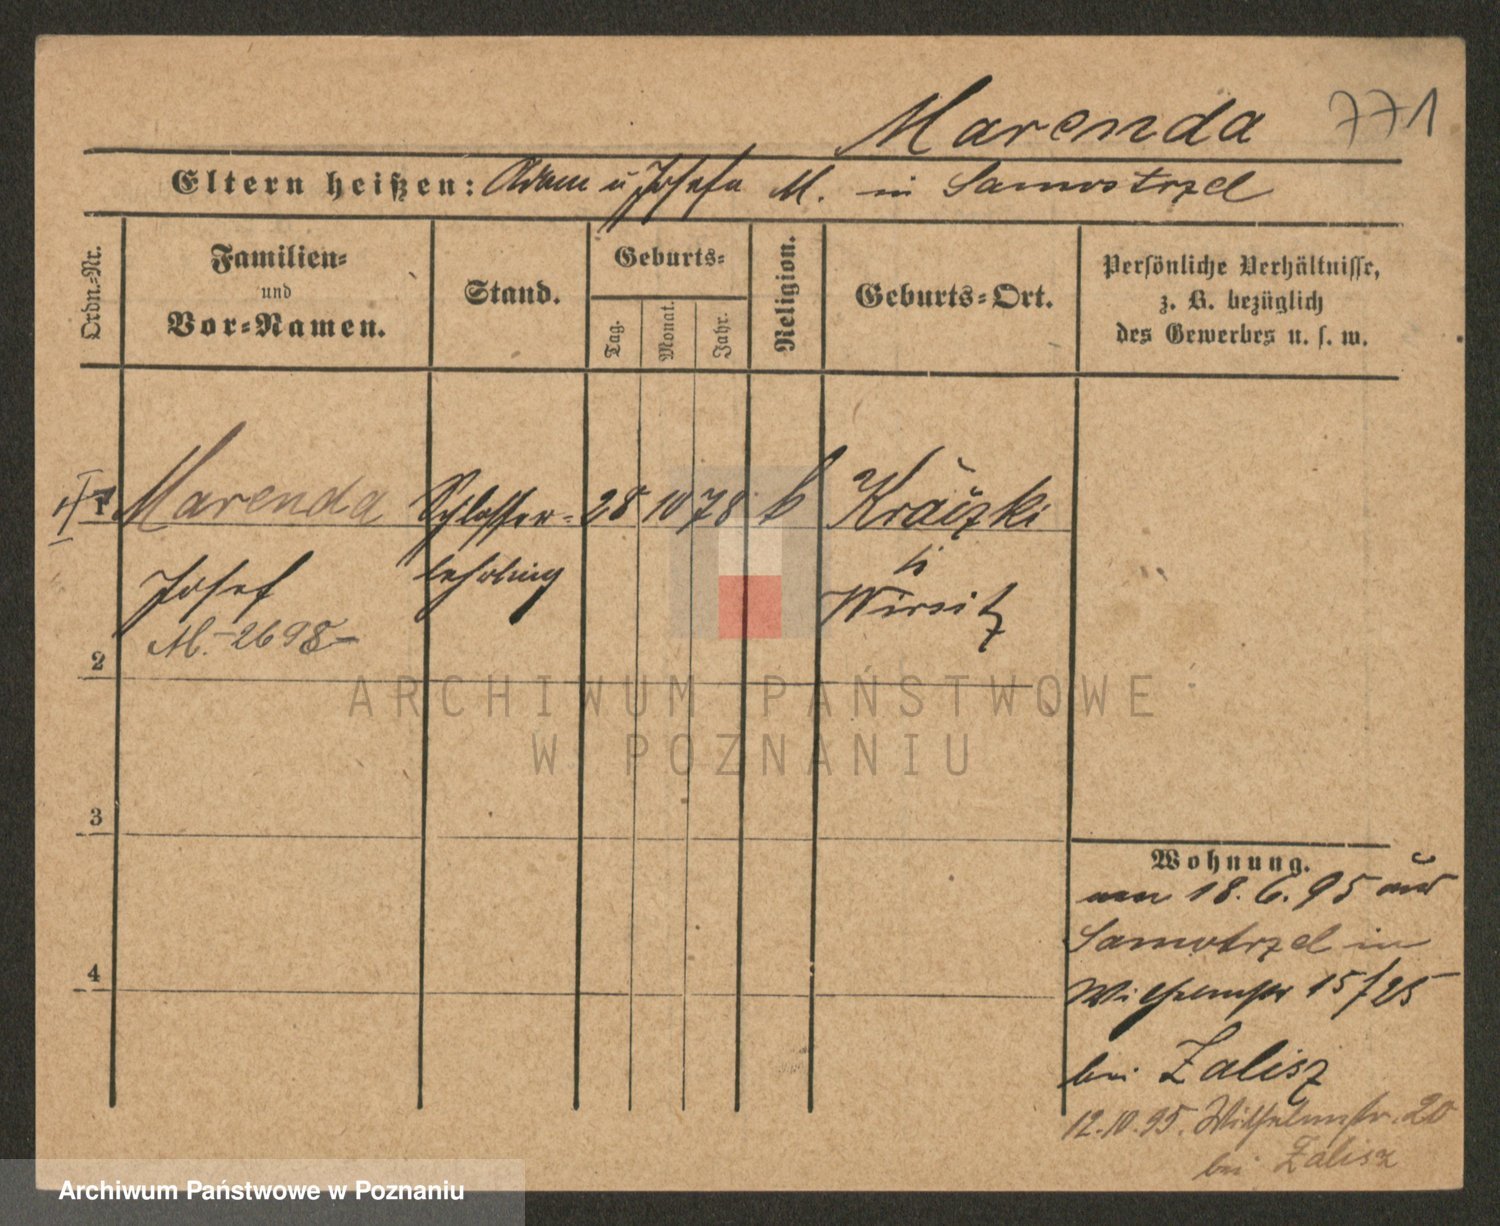 Marenda 771
Eltern heißen: Adam u Josefa M. in Samostrzel
Ordn.-Nr.
Familien-
und
Vor-Namen.
Stand.
Geburts-
Tag.
Monat.
Jahr.
Religion.
Geburts-Ort.
Persönliche Verhältnisse,
z. B. bezüglich
des Gewerbes u. s. w.
1 Marenda Schlosser- 28 10 78 k
lehrling
Josef Wirsitz
M. - 2698 -
2
3
4
Wohnung.
am 18.6.95 aus
Samotrzel in
Wilhelmstr 15/25
bei Zalisz
12.10.95. Wilhelmstr. 20
bei Zalisz
ARCHIWUM PAŃSTWOWE
W POZNANIU
Archiwum Państwowe w Poznaniu